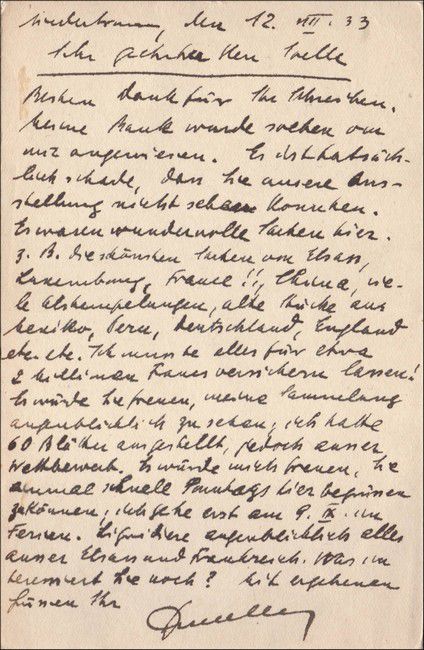 Niederbronn, den 12. VIII. 33
Sehr geehrter Herr Tolle
Besten Dank für Ihr Schreiben.
Meine Bank wurde soeben von
mir angewiesen. Es ist tatsäch-
lich schade, dass Sie unsere Aus-
stellung nicht sehen konnten.
Es waren wundervolle Sachen hier.
z. B. die schönsten Sachen von Elsass,
Luxembourg, France!!, China, vie-
le Abstempelungen, alte Stücke aus
Mexiko, Peru, Deutschland, England
etc. etc. Ich musste alles für etwa
2 Millionen Francs versichern lassen!
Es würde Sie freuen, meine Sammlung
augenblicklich zu sehen; ich hatte
60 Blätter ausgestellt, jedoch ausser
Wettbewerb. Es würde mich freuen, Sie
einmal schnell Sonntags hier begrüssen
zu können; ich gehe erst am 9. IX. in
Ferien. Liquidiere augenblicklich alles
ausser Elsass und Frankreich. Was in
teressiert Sie noch? Mit ergebenen
Grüssen Ihr